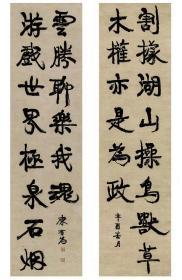 割據湖山操鳥獸草
木權亦是為政
辛酉花月
雲勝聊樂我魂
游戲世界極泉石烟
康有為